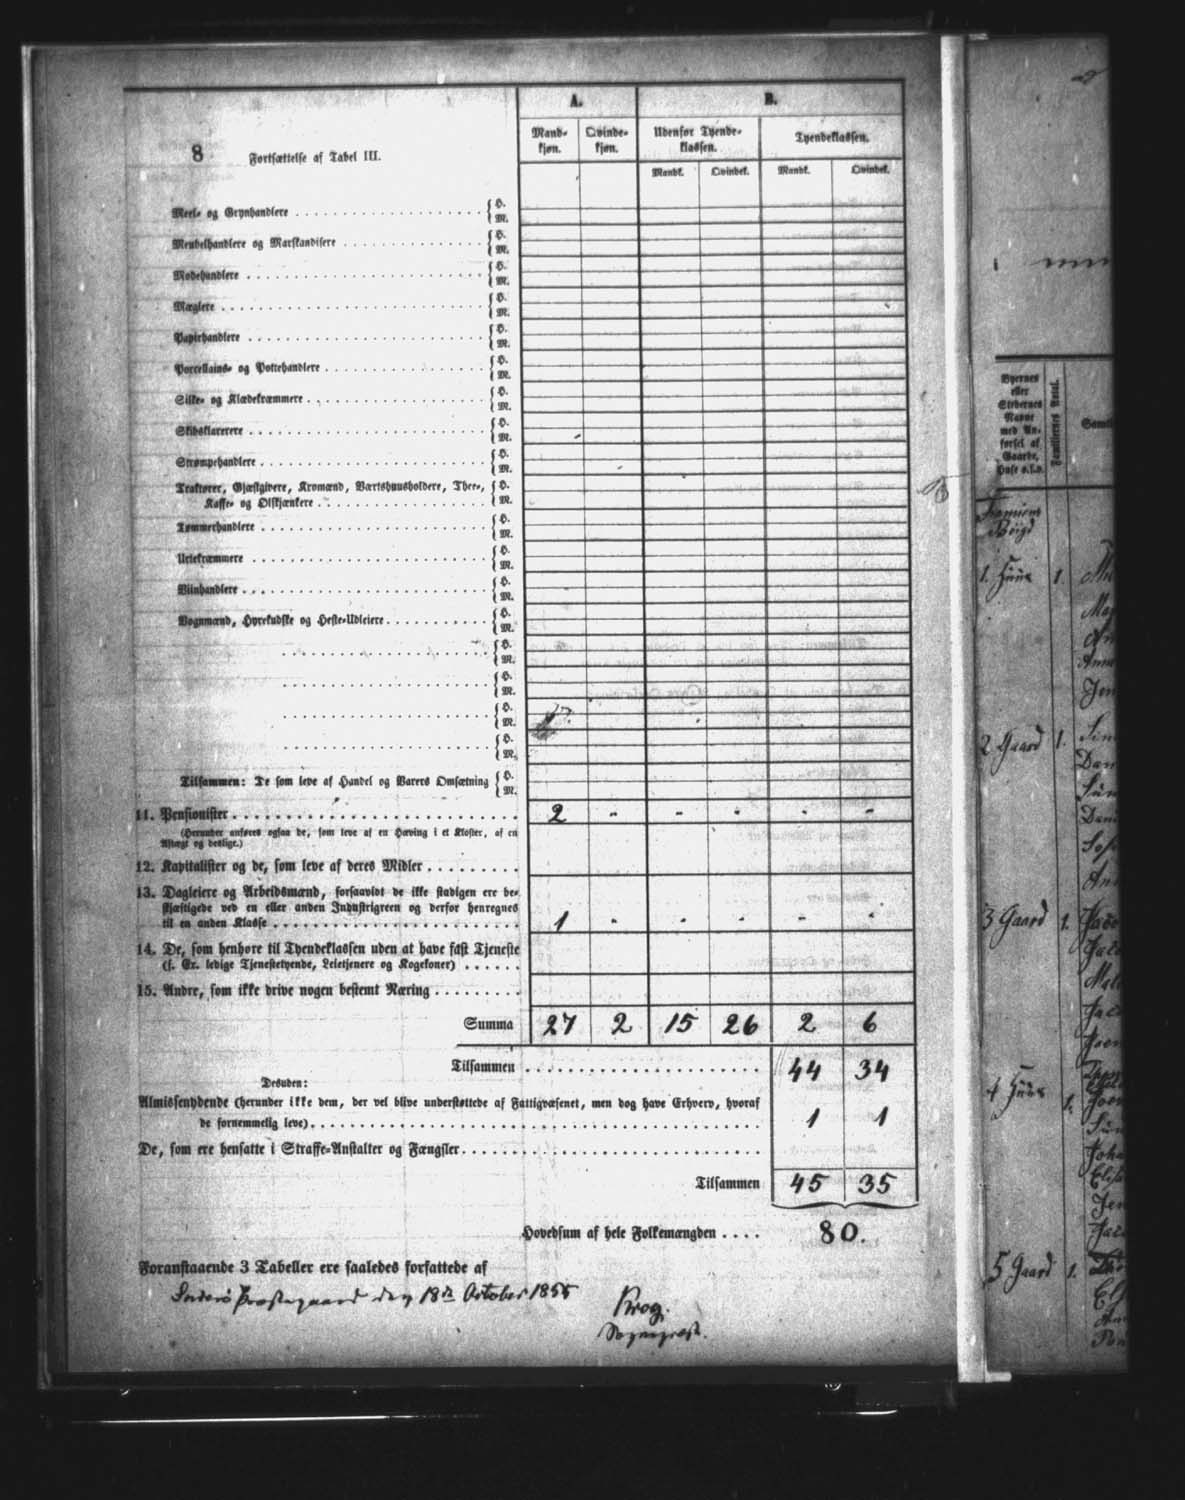 A.
B.
Mand-
kjøn.
Qvinde-
kjøn.
Udenfor Tyende-
klassen.
Tyendeklassen.
Mandk.
Qvindek.
Mandk.
Qvindek.
8 Fortsættelse af Tabel III.
Meel- og Grynhandlere { H. M.
Meubelhandlere og Marskandisere { H. M.
Modehandlere { H. M.
Mæglere { H. M.
Papirhandlere { H. M.
Porcellains- og Pottehandlere { H. M.
Silke- og Klædekræmmere { H. M.
Skibsklarerere { H. M.
Strømpehandlere { H. M.
Traktører, Gjæstgivere, Kromænd, Værtshuusholdere, Thee-,
Kaffe- og Ølskjænkere { H. M.
Tømmerhandlere { H. M.
Urtekræmmere { H. M.
Viinhandlere { H. M.
Vognmænd, Hyrekudske og Heste-Udleiere { H. M.
{ H. M.
{ H. M.
{ H. M.
{ H. M.
Tilsammen: De som leve af Handel og Varers Omsætning { H. M.
11. Pensionister 2 - - - - -
(Herunder anføres ogsaa de, som leve af en Hæving i et Kloster, af en
Aftægt og deslige.)
12. Kapitalister og de, som leve af deres Midler
13. Dagleiere og Arbeidsmænd, forsaavidt de ikke stadigen ere be-
skjæftigede ved en eller anden Industrigreen og derfor henregnes
til en anden Klasse 1 - - - - -
14. De, som henhøre til Tyendeklassen uden at have fast Tjeneste
(f. Ex. ledige Tjenestetyende, Leietjenere og Kogekoner)
15. Andre, som ikke drive nogen bestemt Næring
Summa 27 2 15 26 2 6
Tilsammen 44 34
Desuden:
Almissenydende (herunder ikke dem, der vel blive understøttede af Fattigvæsenet, men dog have Erhverv, hvoraf
de fornemmelig leve) 1 1
De, som ere hensatte i Straffe-Anstalter og Fængsler
Tilsammen 45 35
Hovedsum af hele Folkemængden 80.
Foranstaaende 3 Tabeller ere saaledes forfattede af
Præstegaard den 18de October 1855
Krog.
Sognepræst.
Byernes
eller
Stedernes
Navne
med An-
førsel af
Gaarde,
Huse o.s.v.
Familiernes Antal.
1. Huus 1.
2 Gaard 1.
3 Gaard 1.
4 Huus 1.
5 Gaard 1.